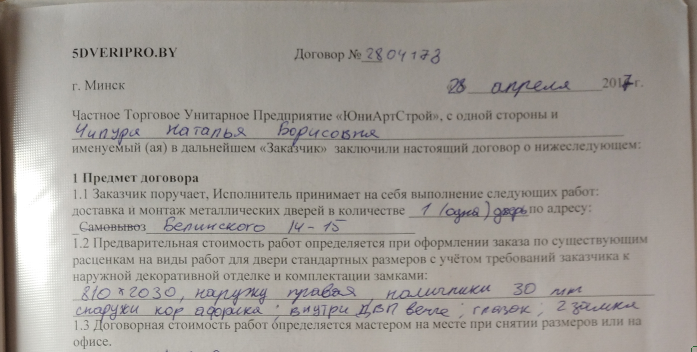 5DVERIPRO.BY Договор № 2804173
г. Минск 28 апреля 2017 г.
Частное Торговое Унитарное Предприятие «ЮниАртСтрой», с одной стороны и
Чипура Наталья Борисовна
именуемый (ая) в дальнейшем «Заказчик» заключили настоящий договор о нижеследующем:
1 Предмет договора
1.1 Заказчик поручает, Исполнитель принимает на себя выполнение следующих работ:
доставка и монтаж металлических дверей в количестве 1 (одна) дверь по адресу:
Самовывоз Белинского 14-15
1.2 Предварительная стоимость работ определяется при оформлении заказа по существующим
расценкам на виды работ для двери стандартных размеров с учётом требований заказчика к
наружной декоративной отделке и комплектации замками:
810*2030, наружу правая наличники 30 мм
снаружи кор африка; внутри ДВП венге; глазок; 2 замка
1.3 Договорная стоимость работ определяется мастером на месте при снятии размеров или на
офисе.